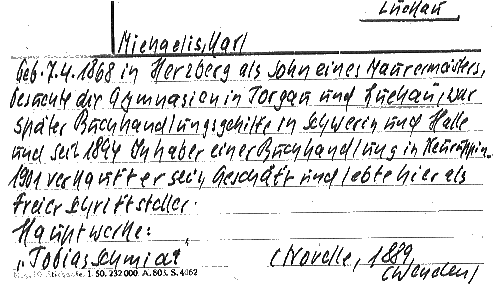 Luckau
Michaelis, Karl
Geb. 7.4. 1868 in Herzberg als Sohn eines Maurermeisters,
besuchte die Gymnasien in Torgau und Luckau, war
später Buchhandlungsgehilfe in Schwerin und Halle
und seit 1894 Inhaber einer Buchhandlung in Neuruppin.
1901 verkaufte er sein Geschäft und lebte hier als
freier Schriftsteller.
Hauptwerke:
"Tobias Schmidt" (Novelle, 1889,
(Wenden)
I. 50. 232 000. A. 803. S. 4062